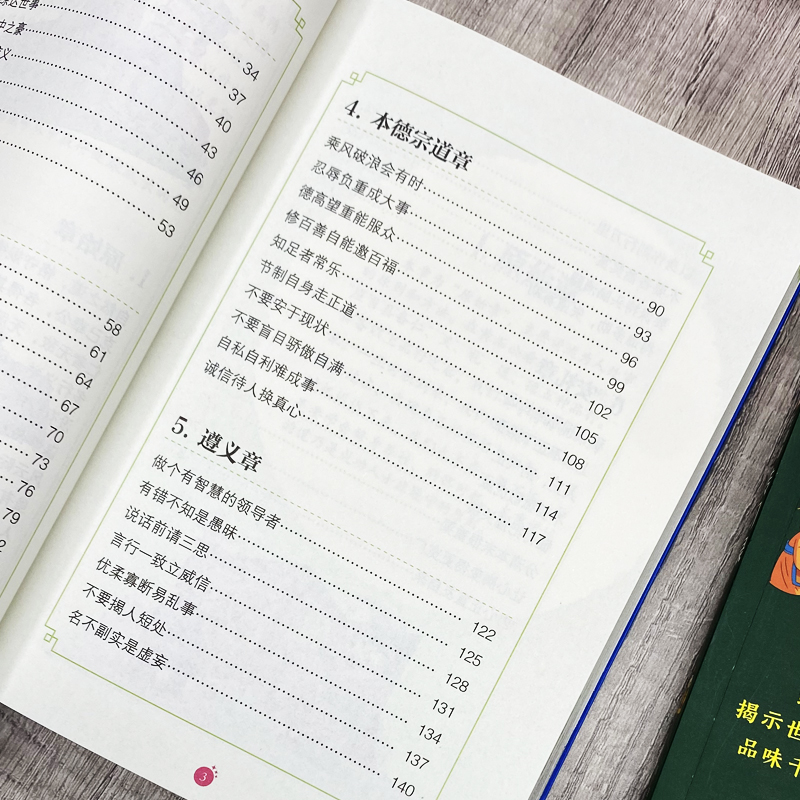 世事
之豪
34
37
40
43
46
49
53
58
61
64
67
70
73
76
79
4. 本德宗道章
乘风破浪会有时 90
忍辱负重成大事 93
德高望重能服众 96
修百善自能邀百福 99
知足者常乐 102
节制自身走正道 105
不要安于现状 108
不要盲目骄傲自满 111
自私自利难成事 114
诚信待人换真心 117
5. 遵义章
做个有智慧的领导者 122
有错不知是愚昧 125
说话前请三思 128
言行一致立威信 131
优柔寡断易乱事 134
不要揭人短处 137
名不副实是虚妄 140
3
揭示世
品味千